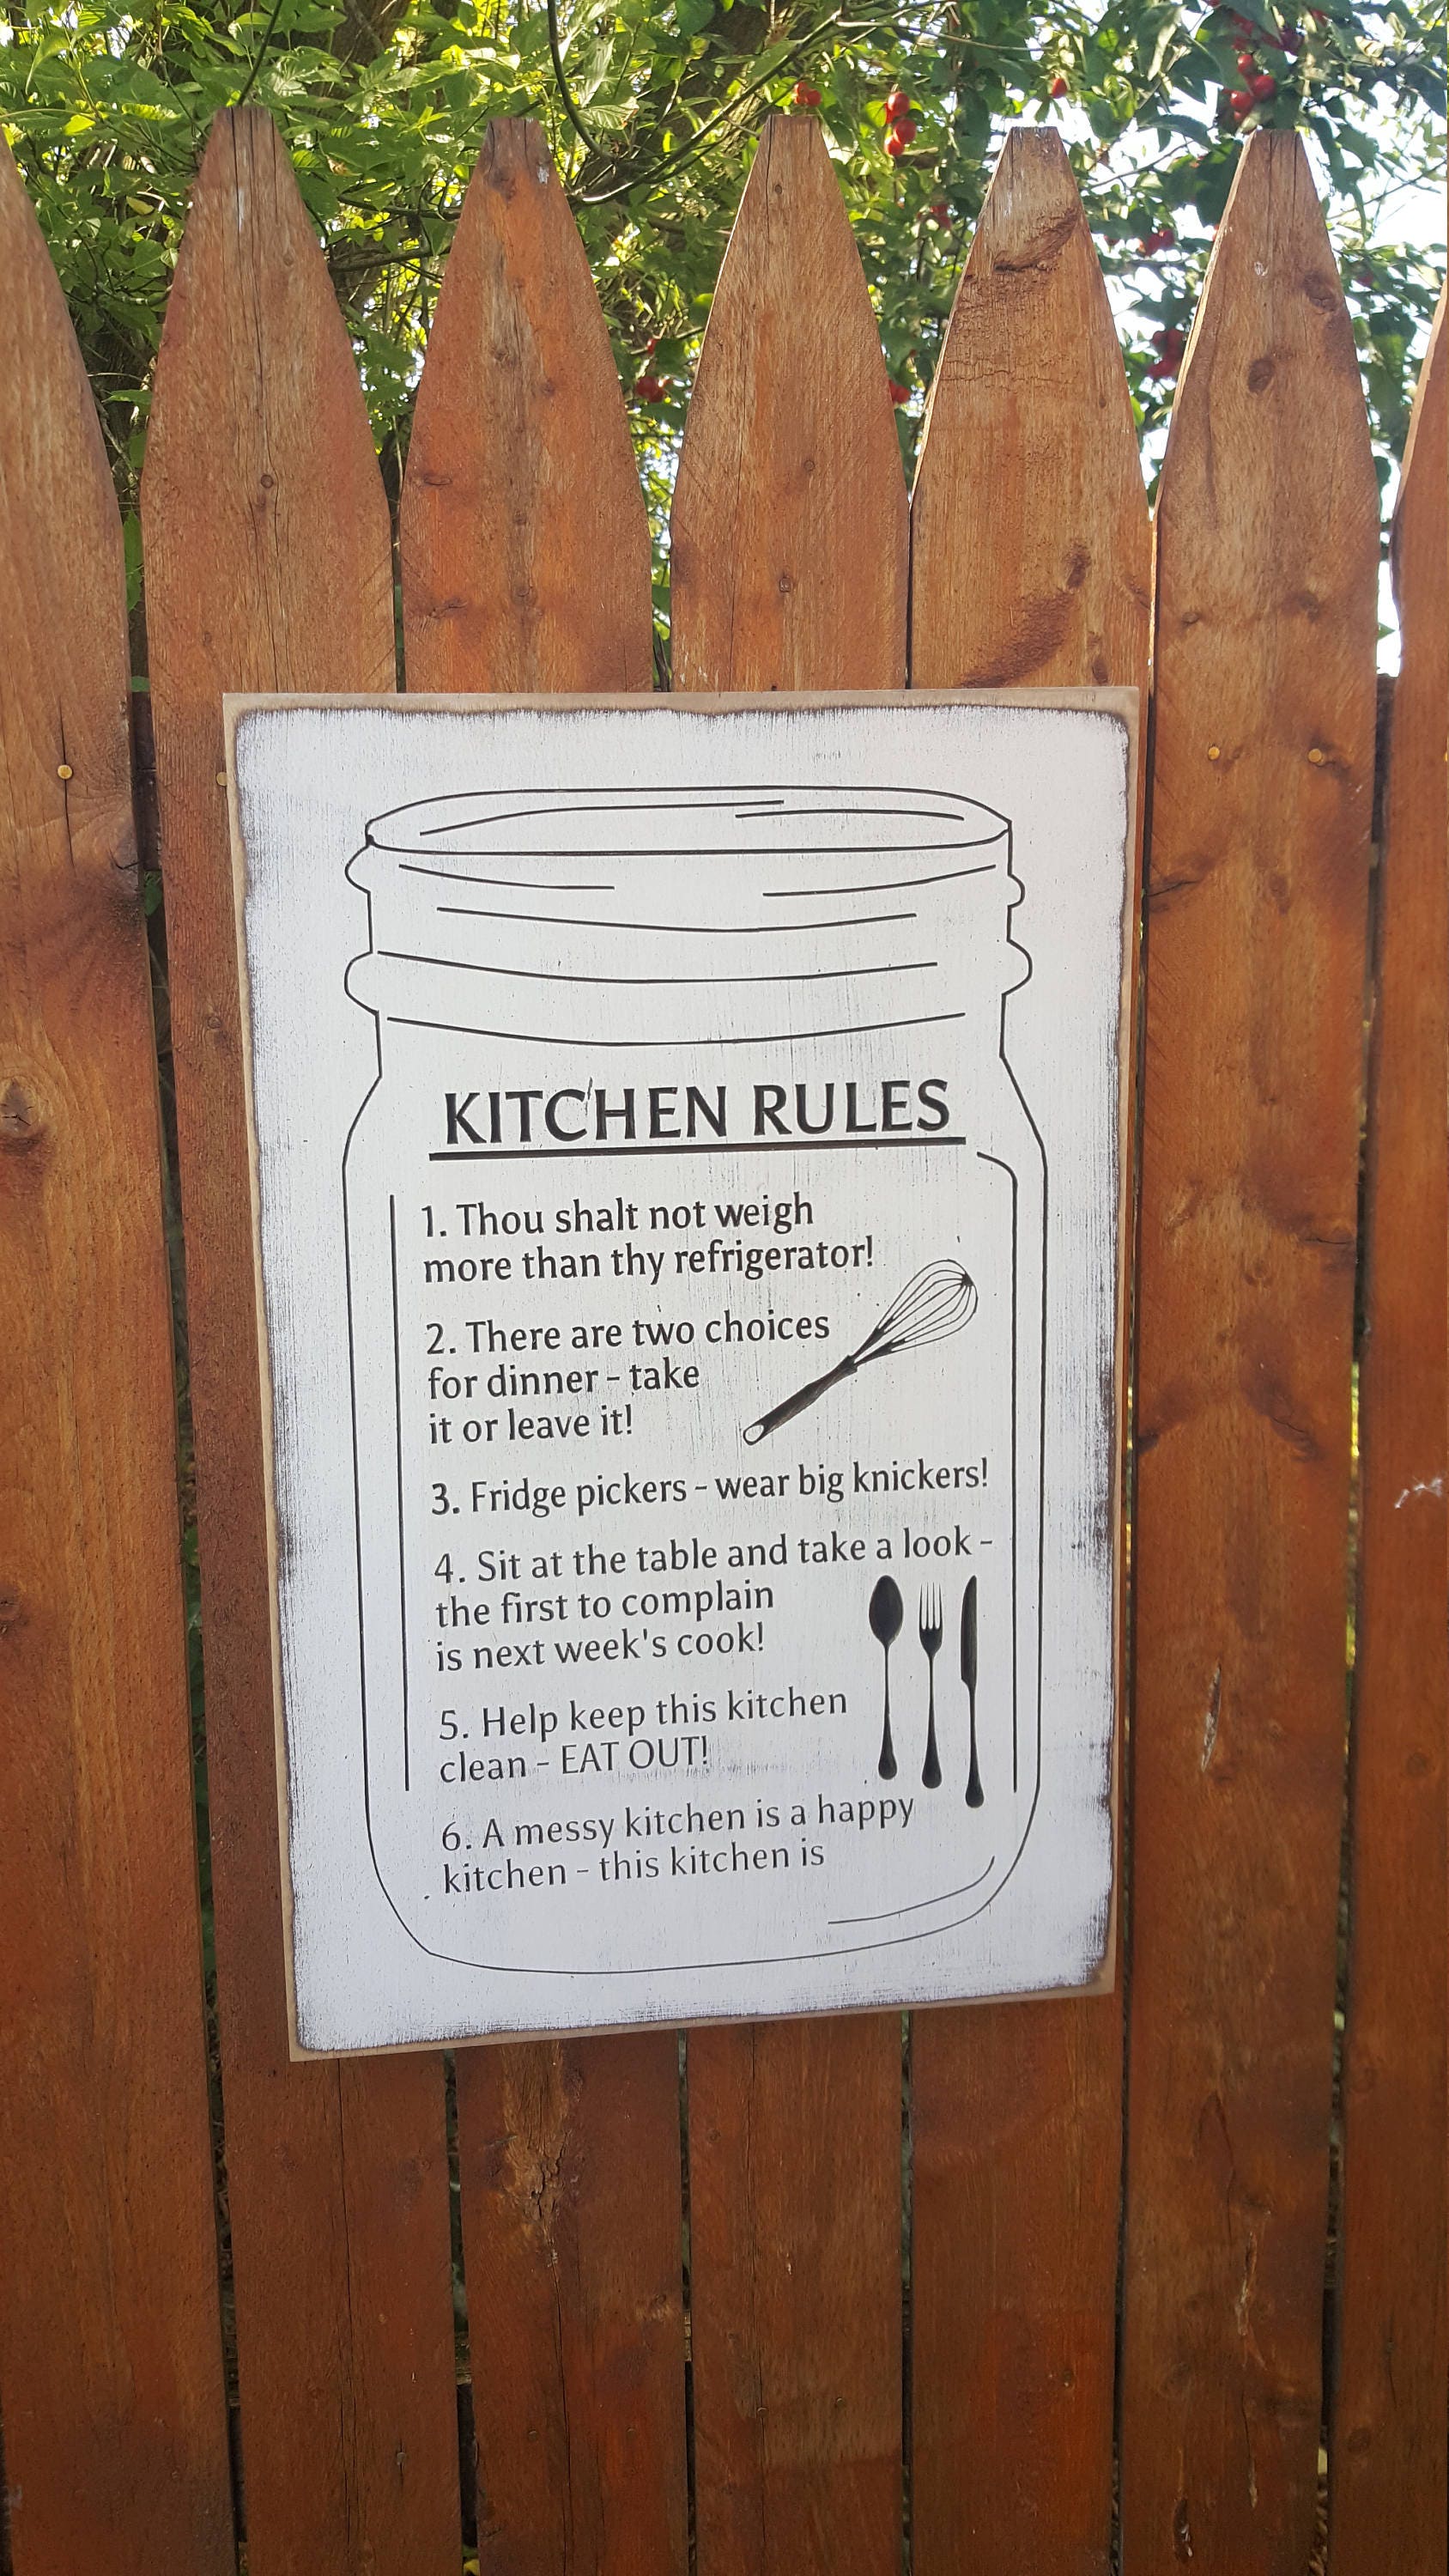 KITCHEN RULES
1. Thou shalt not weigh
more than thy refrigerator!
2. There are two choices
for dinner - take
it or leave it!
3. Fridge pickers - wear big knickers!
4. Sit at the table and take a look -
the first to complain
is next week's cook!
5. Help keep this kitchen
clean - EAT OUT!
6. A messy kitchen is a happy
kitchen - this kitchen is